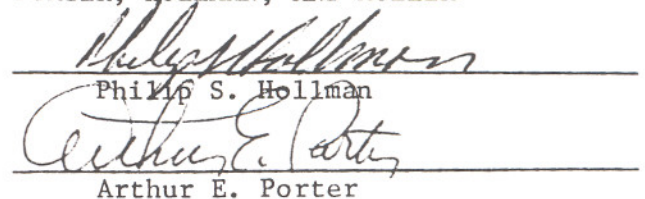 Philip S. Hollman
Philip S. Hollman
Arthur E. Porter
Arthur E. Porter